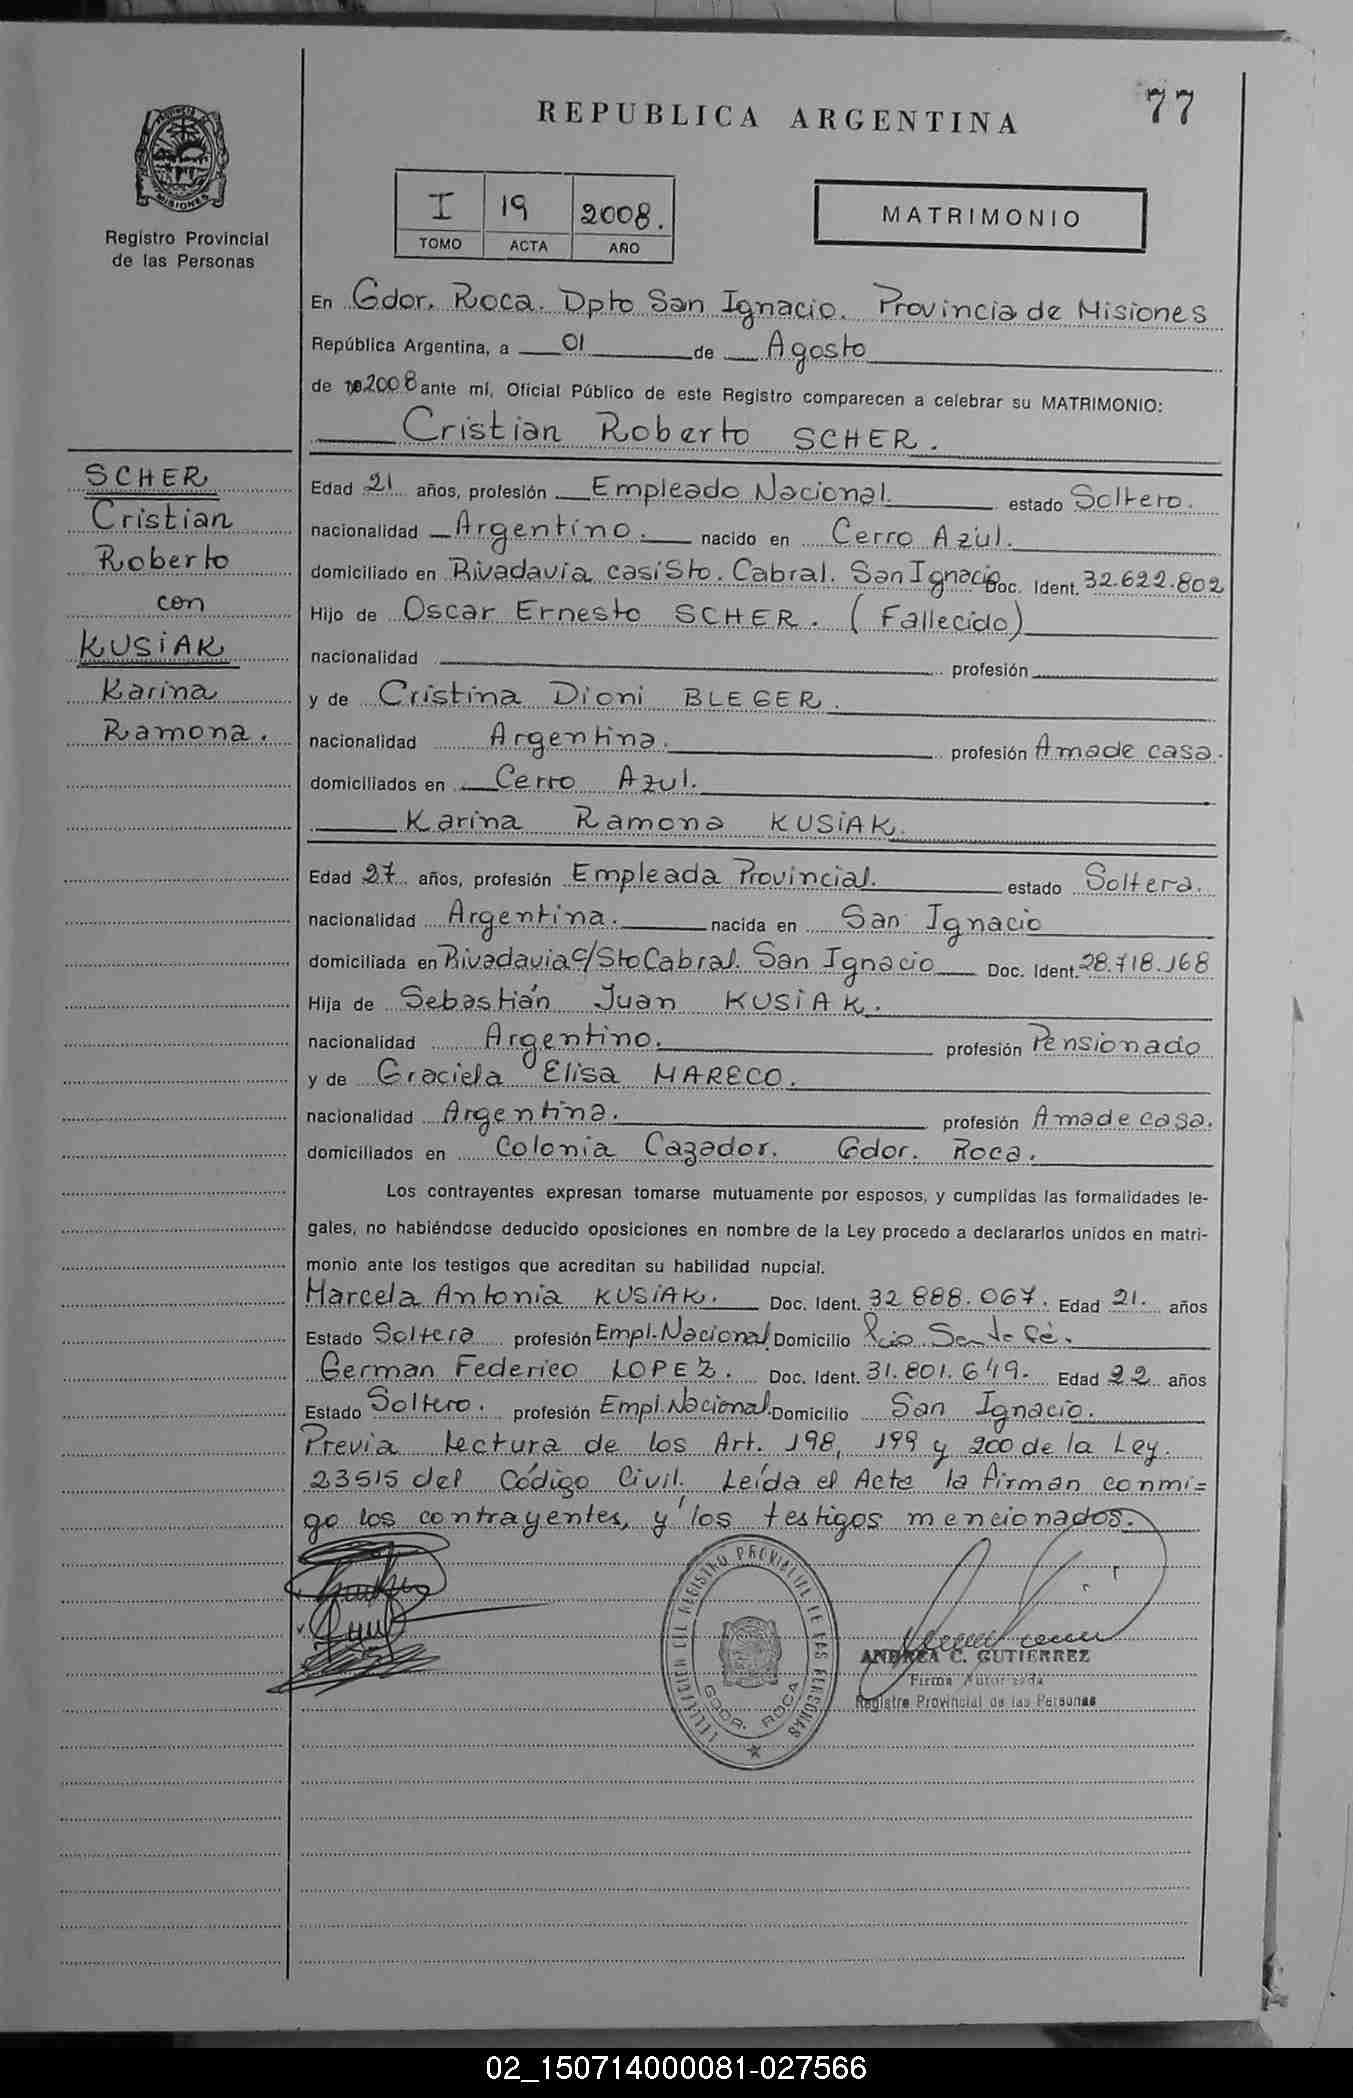 77
REPUBLICA ARGENTINA
MISIONES
Registro Provincial
de las Personas
I 19 2008.
TOMO ACTA AÑO
MATRIMONIO
En Gdor. Roca. Dpto San Ignacio. Provincia de Misiones
República Argentina, a 01 de Agosto
de 2008 ante mí, Oficial Público de este Registro comparecen a celebrar su MATRIMONIO:
Cristian Roberto SCHER.
SCHER
Cristian
Roberto
con
KUSiAK
Karina
Ramona.
Edad 21 años, profesión Empleado Nacional. estado Soltero.
nacionalidad Argentino. nacido en Cerro Azul.
domiciliado en Rivadavia casi Sto. Cabral. San Ignacio Doc. Ident. 32.622.802
Hijo de Oscar Ernesto SCHER. (Fallecido)
nacionalidad profesión
y de Cristina Dioni BLEGER.
nacionalidad Argentina. profesión Ama de casa.
domiciliados en Cerro Azul.
Karina Ramona KUSiAK.
Edad 27 años, profesión Empleada Provincial. estado Soltera.
nacionalidad Argentina. nacida en San Ignacio
domiciliada en Rivadavia c/Sto Cabral. San Ignacio Doc. Ident. 28.718.168
Hija de Sebastián Juan KUSiAK.
nacionalidad Argentino. profesión Pensionado
y de Graciela Elisa MARECO.
nacionalidad Argentina. profesión Ama de casa.
domiciliados en Colonia Cazador. Gdor. Roca.
Los contrayentes expresan tomarse mutuamente por esposos, y cumplidas las formalidades le-
gales, no habiéndose deducido oposiciones en nombre de la Ley procedo a declararlos unidos en matri-
monio ante los testigos que acreditan su habilidad nupcial.
Marcela Antonia KUSiAK. Doc. Ident. 32 888.067. Edad 21. años
Estado Soltera profesión Empl. Nacional Domicilio Santa Fé.
German Federico LOPEZ. Doc. Ident. 31.801.649. Edad 22 años
Estado Soltero. profesión Empl. Nacional. Domicilio San Ignacio.
Previa lectura de los Art. 198, 199 y 200 de la Ley
23515 del Código Civil. Leída el Acta la firman conmi=
go los contrayentes, y los testigos mencionados.
REGISTRO PROVINCIAL DE LAS PERSONAS
GDOR. ROCA
ANDREA C. GUTIERREZ
Firma Autorizada
Registro Provincial de las Personas
02_150714000081-027566